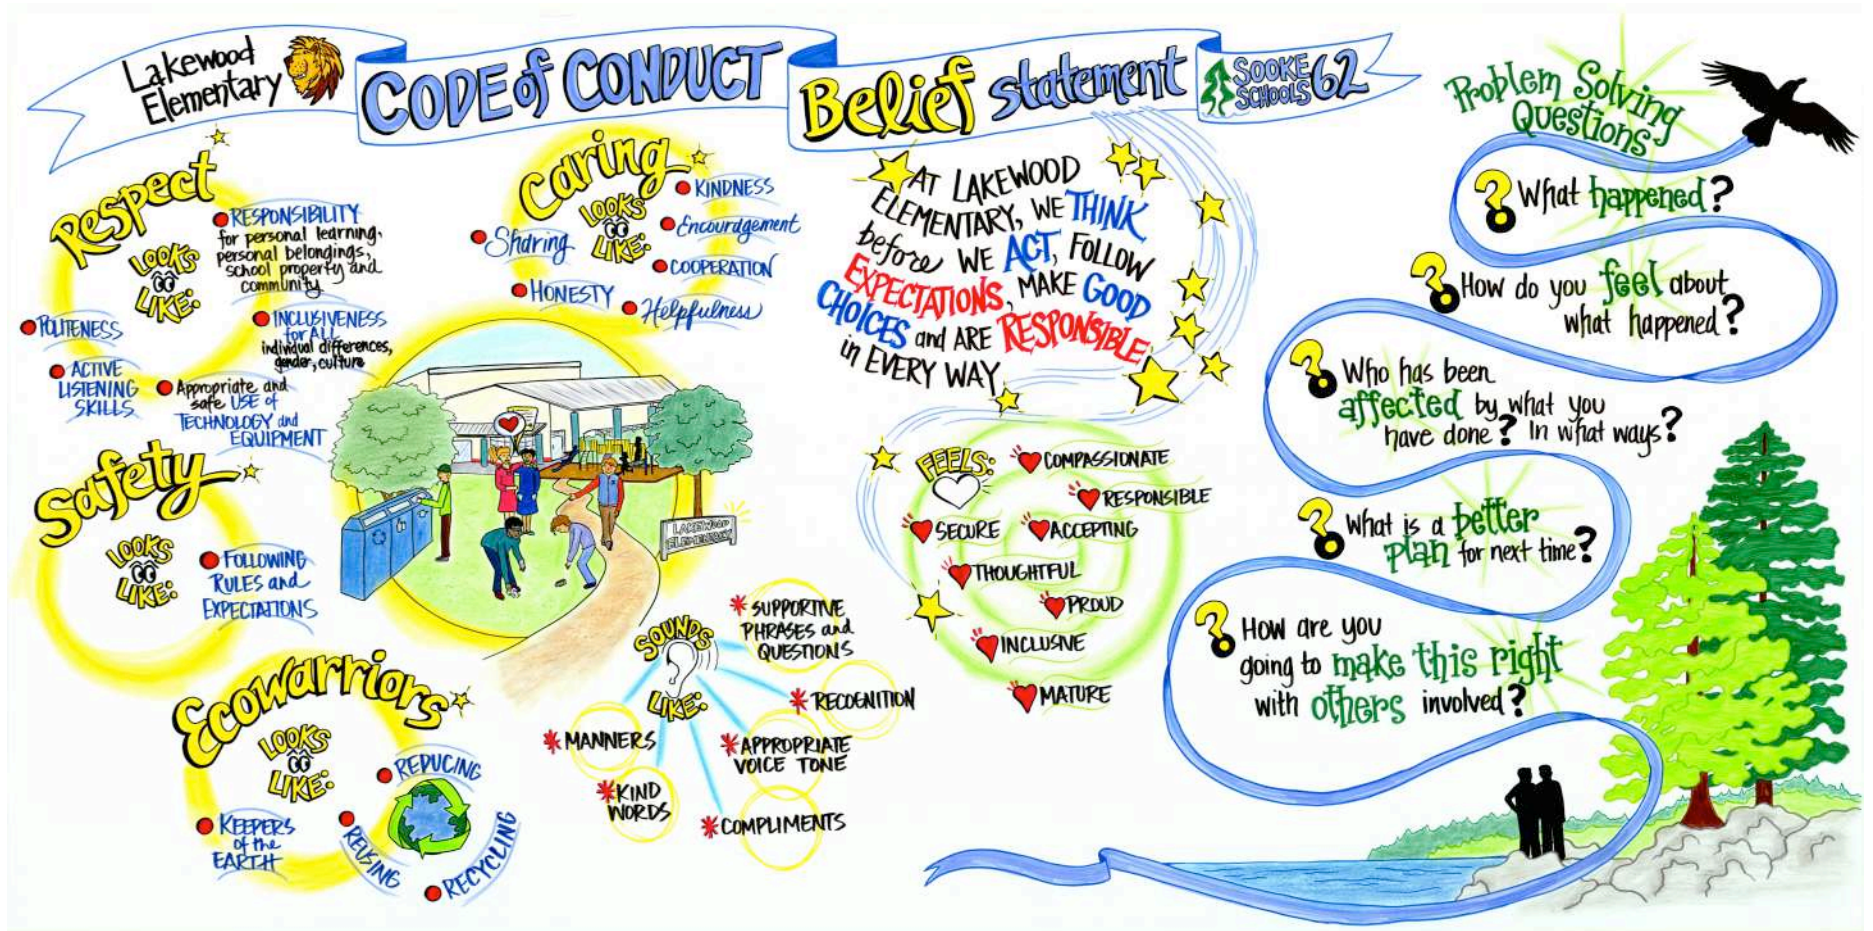 Lakewood
Elementary
CODE of CONDUCT
Belief statement
SOOKE
SCHOOLS 62
Respect
LOOKS
LIKE:
RESPONSIBILITY
for personal learning,
personal belongings,
school property and
community
POLITENESS
INCLUSIVENESS
for ALL
individual differences,
gender, culture
ACTIVE
LISTENING
SKILLS
Appropriate and
safe USE of
TECHNOLOGY and
EQUIPMENT
Caring
LOOKS
LIKE:
KINDNESS
Encouragement
Sharing
COOPERATION
HONESTY
Helpfulness
Safety
LOOKS
LIKE:
FOLLOWING
RULES and
EXPECTATIONS
LAKEWOOD
ELEMENTARY
Ecowarriors
LOOKS
LIKE:
REDUCING
KEEPERS
of the
EARTH
REUSING
RECYCLING
SOUNDS
LIKE:
SUPPORTIVE
PHRASES and
QUESTIONS
RECOGNITION
MANNERS
APPROPRIATE
VOICE TONE
KIND
WORDS
COMPLIMENTS
AT LAKEWOOD
ELEMENTARY, WE THINK
before WE ACT, FOLLOW
EXPECTATIONS, MAKE GOOD
CHOICES and ARE RESPONSIBLE
in EVERY WAY
FEELS:
COMPASSIONATE
RESPONSIBLE
SECURE
ACCEPTING
THOUGHTFUL
PROUD
INCLUSIVE
MATURE
Problem Solving
Questions
? What happened?
? How do you feel about
what happened?
? Who has been
affected by what you
have done? In what ways?
? What is a better
plan for next time?
? How are you
going to make this right
with others involved?